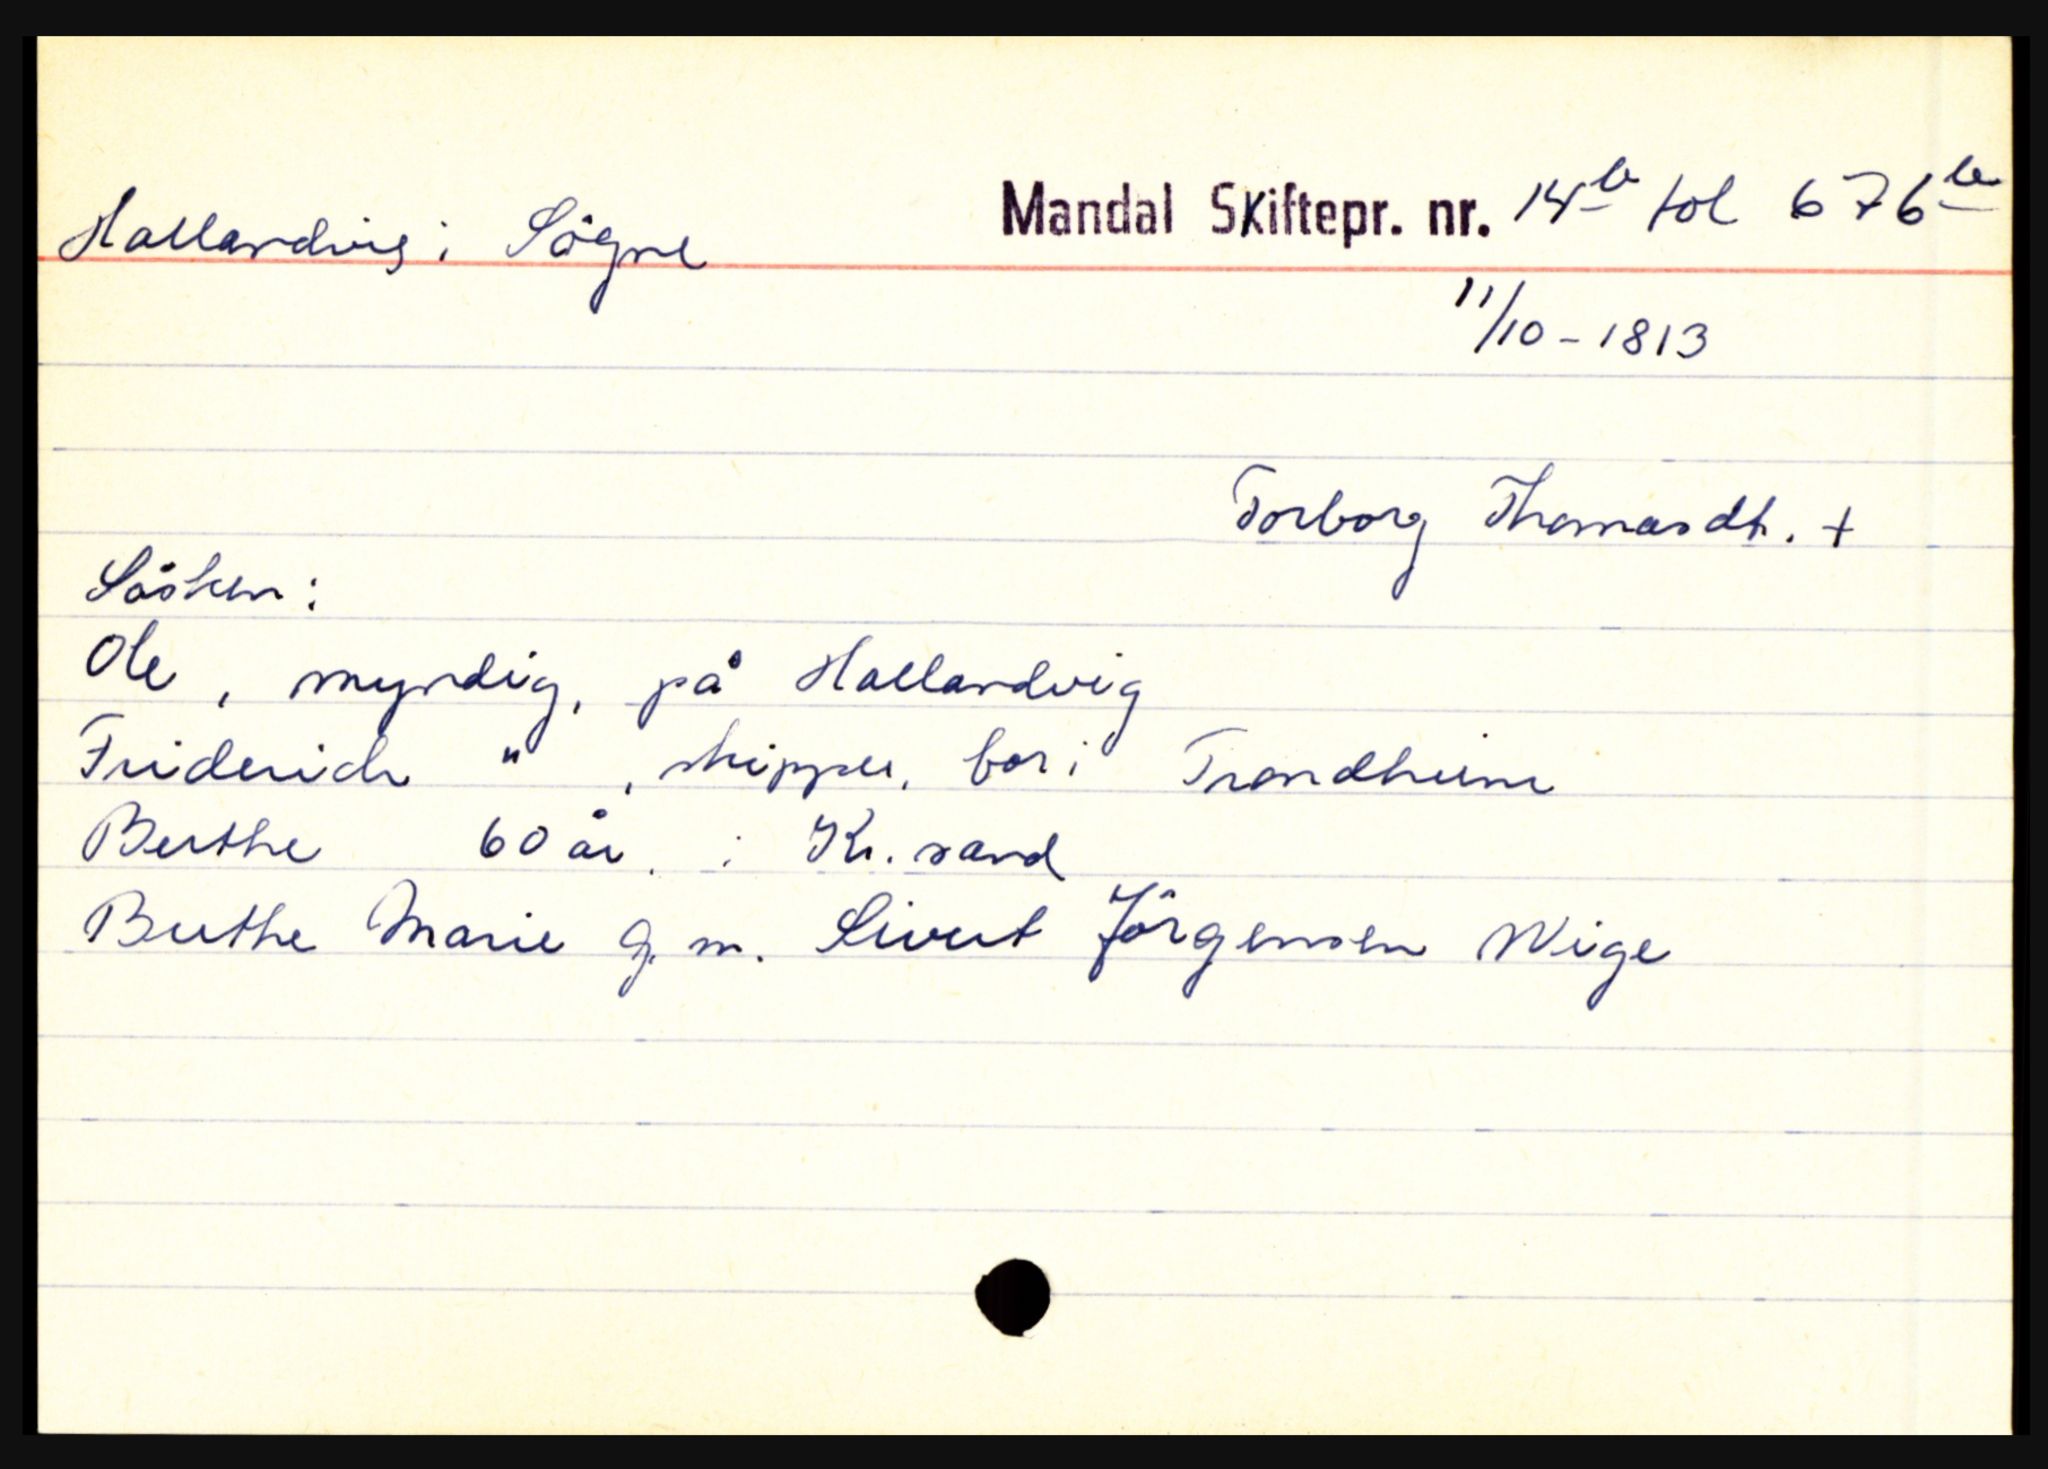 Hallandvig i Sögne Mandal Skiftepr. nr. 14b fol 676b
11/10-1813
Torborg Thomasdt. +
Sösken:
Ole, myndig, på Hallandvig
Friderich ", skipper, bor i Trondheim
Berthe 60 år. i Kr. sand
Berthe Marie g. m. Sivert Jörgensen Weige